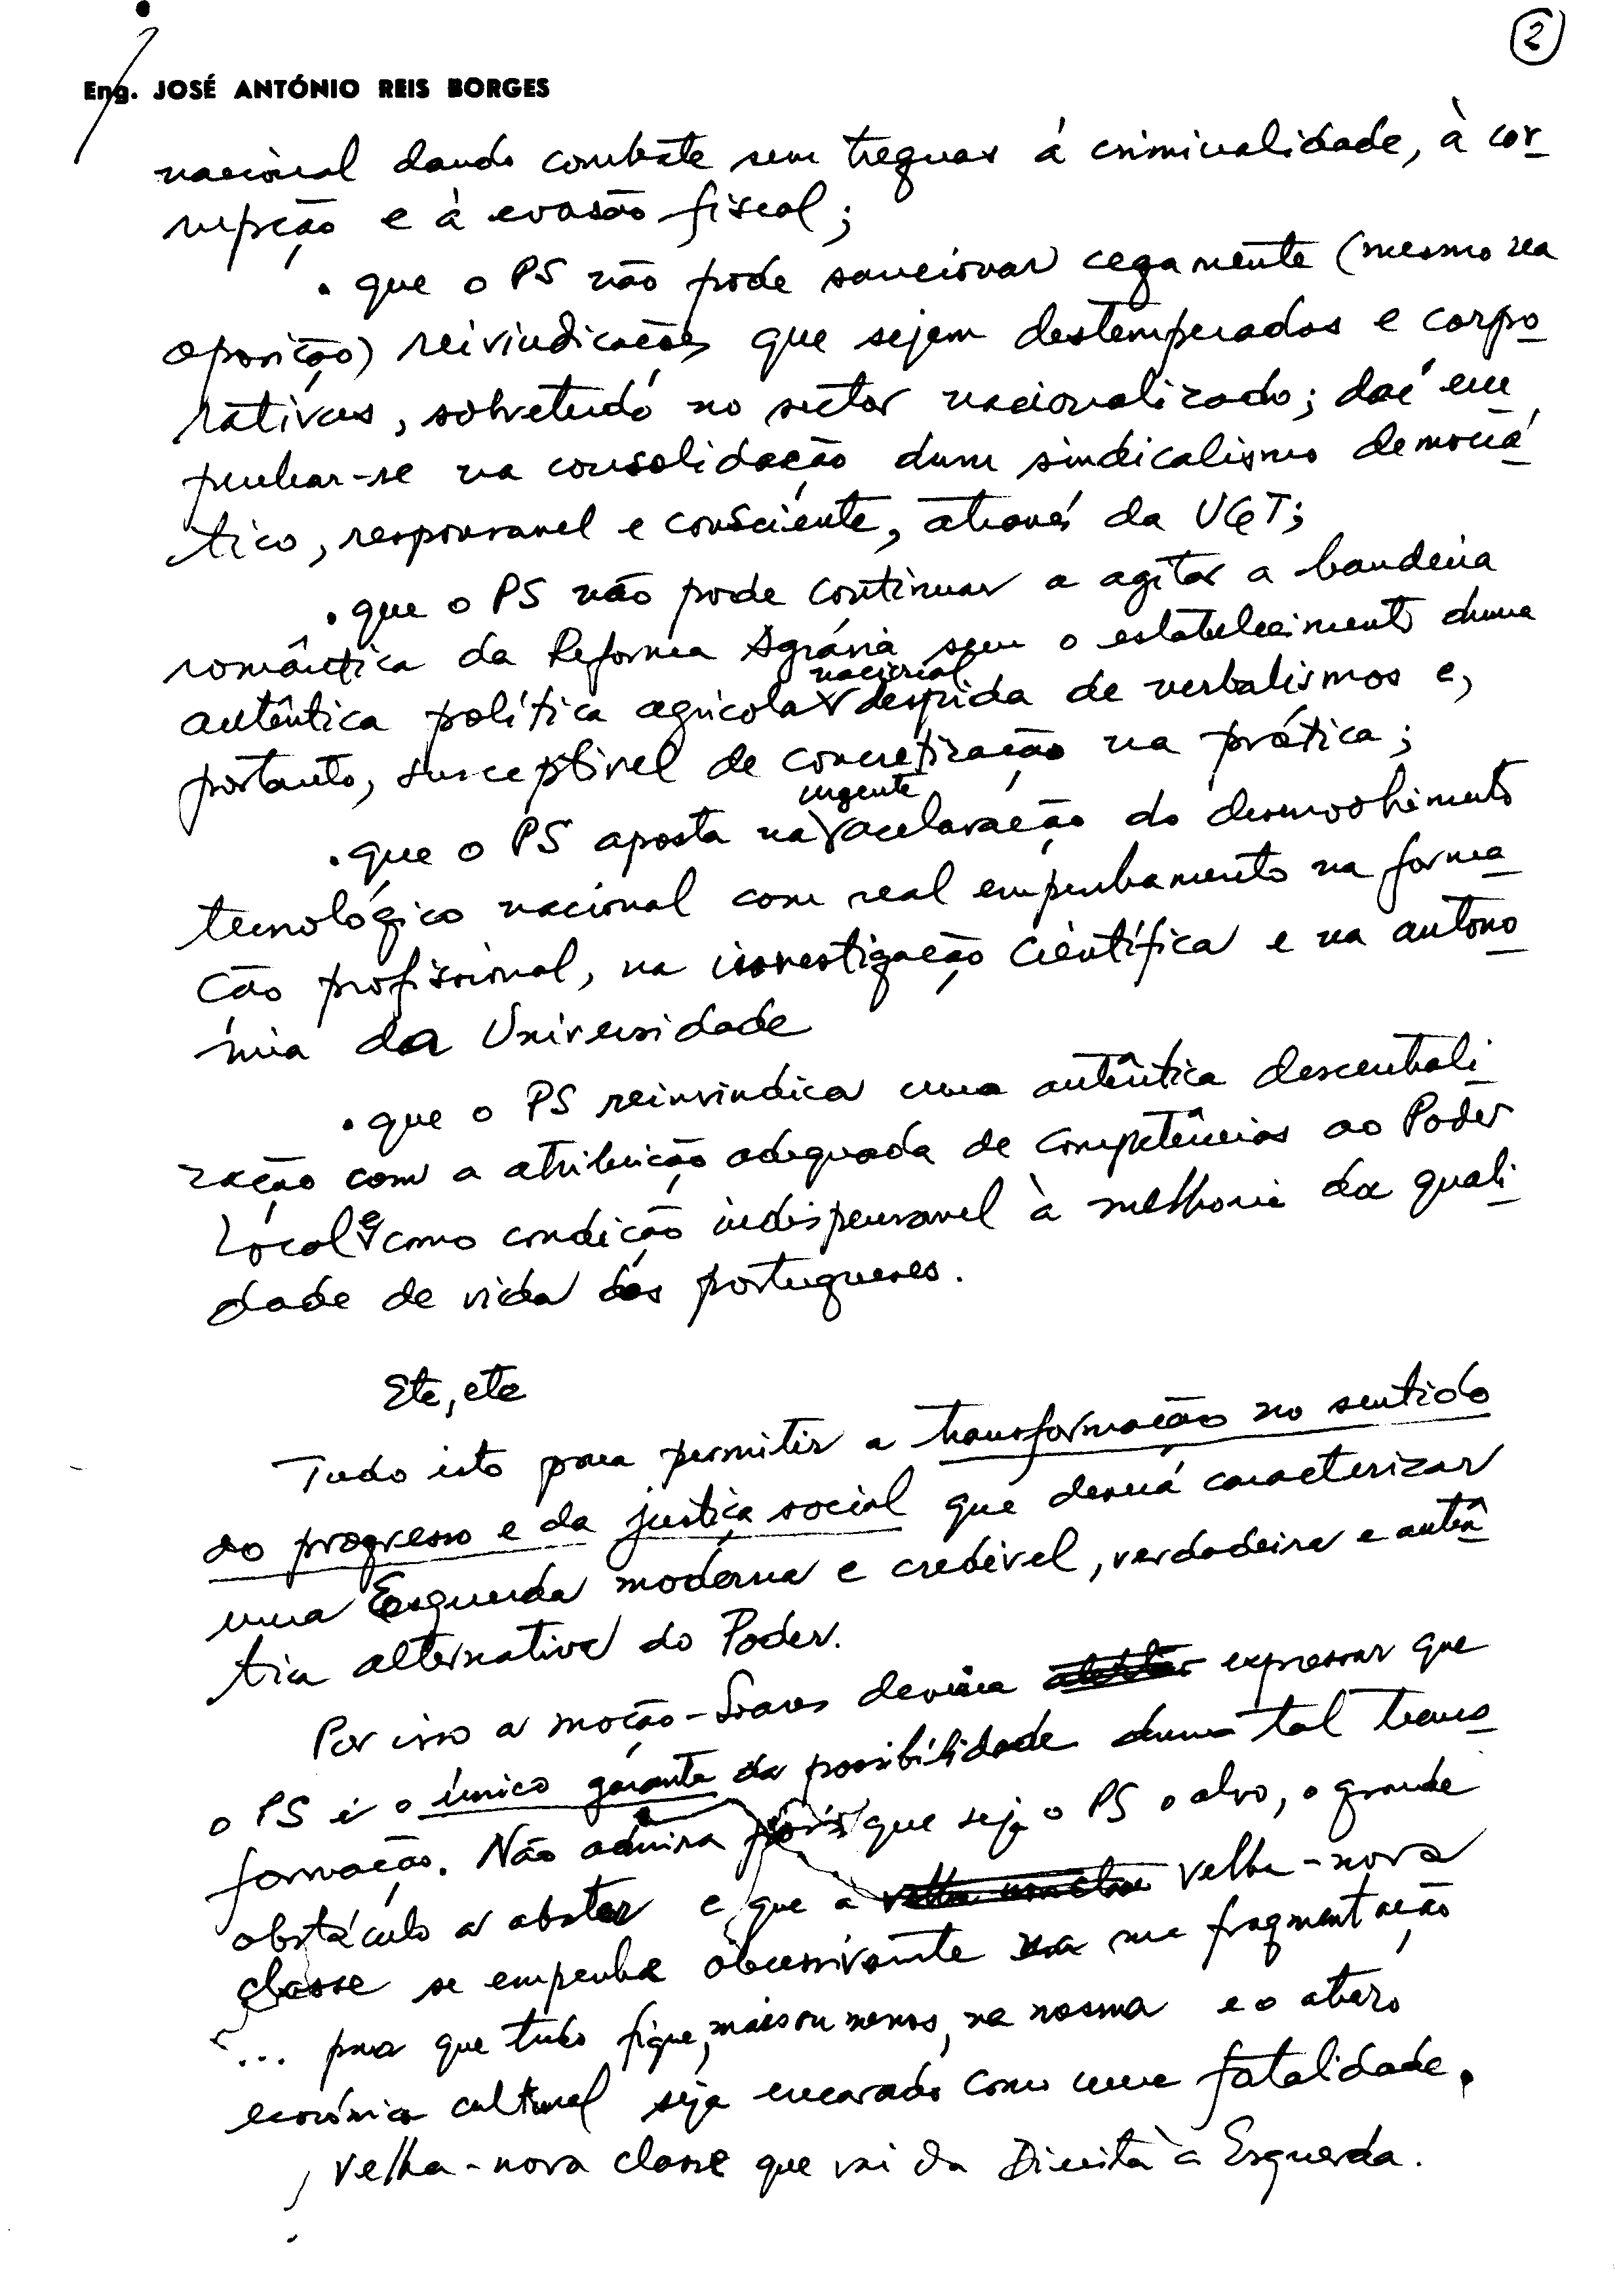 2
Eng. JOSÉ ANTÓNIO REIS BORGES
nacional dando combate sem treguas á criminalidade, à cor
rupção e à evasão fiscal;
. que o PS não pode sancionar cegamente (mesmo na
oposição) reivindicações que sejam destemperadas e corpo
rativas, sobretudo no sector nacionalizado; daí em
penhar-se na consolidação dum sindicalismo democrá
tico, responsavel e consciente, através da UGT;
. que o PS não pode continuar a agitar a bandeira
romântica da Reforma Agrária sem o estabelecimento duma
nacional
autêntica política agricola despida de verbalismos e,
portanto, susceptivel de concretização na prática;
urgente
. que o PS aposta na aceleração do desenvolvimento
tecnológico nacional com real empenhamento na forma
ção profissional, na investigação científica e na autono
mia da Universidade
. que o PS reinvindica uma autêntica descentrali
zação com a atribuição adequada de competências ao Poder
Local e como condição indispensavel à melhoria da quali
dade de vida dos portugueses.
Etc, etc
Tudo isto para permitir a transformação no sentido
do progresso e da justiça social que deverá caracterizar
uma Esquerda moderna e credível, verdadeira e autên
tica alternativa do Poder.
Por isso a moção-Soares deveria expressar que
o PS é o único garante da possibilidade duma tal trans
formação. Não admira pois que seja o PS o alvo, o grande
obstáculo a abater e que a velha-nova
classe se empenha na fragmentação
... para que tudo fique, mais ou menos, na mesma e o atraso
económico cultural seja encarado como uma fatalidade.
, velha-nova classe que vai da Direita à Esquerda.